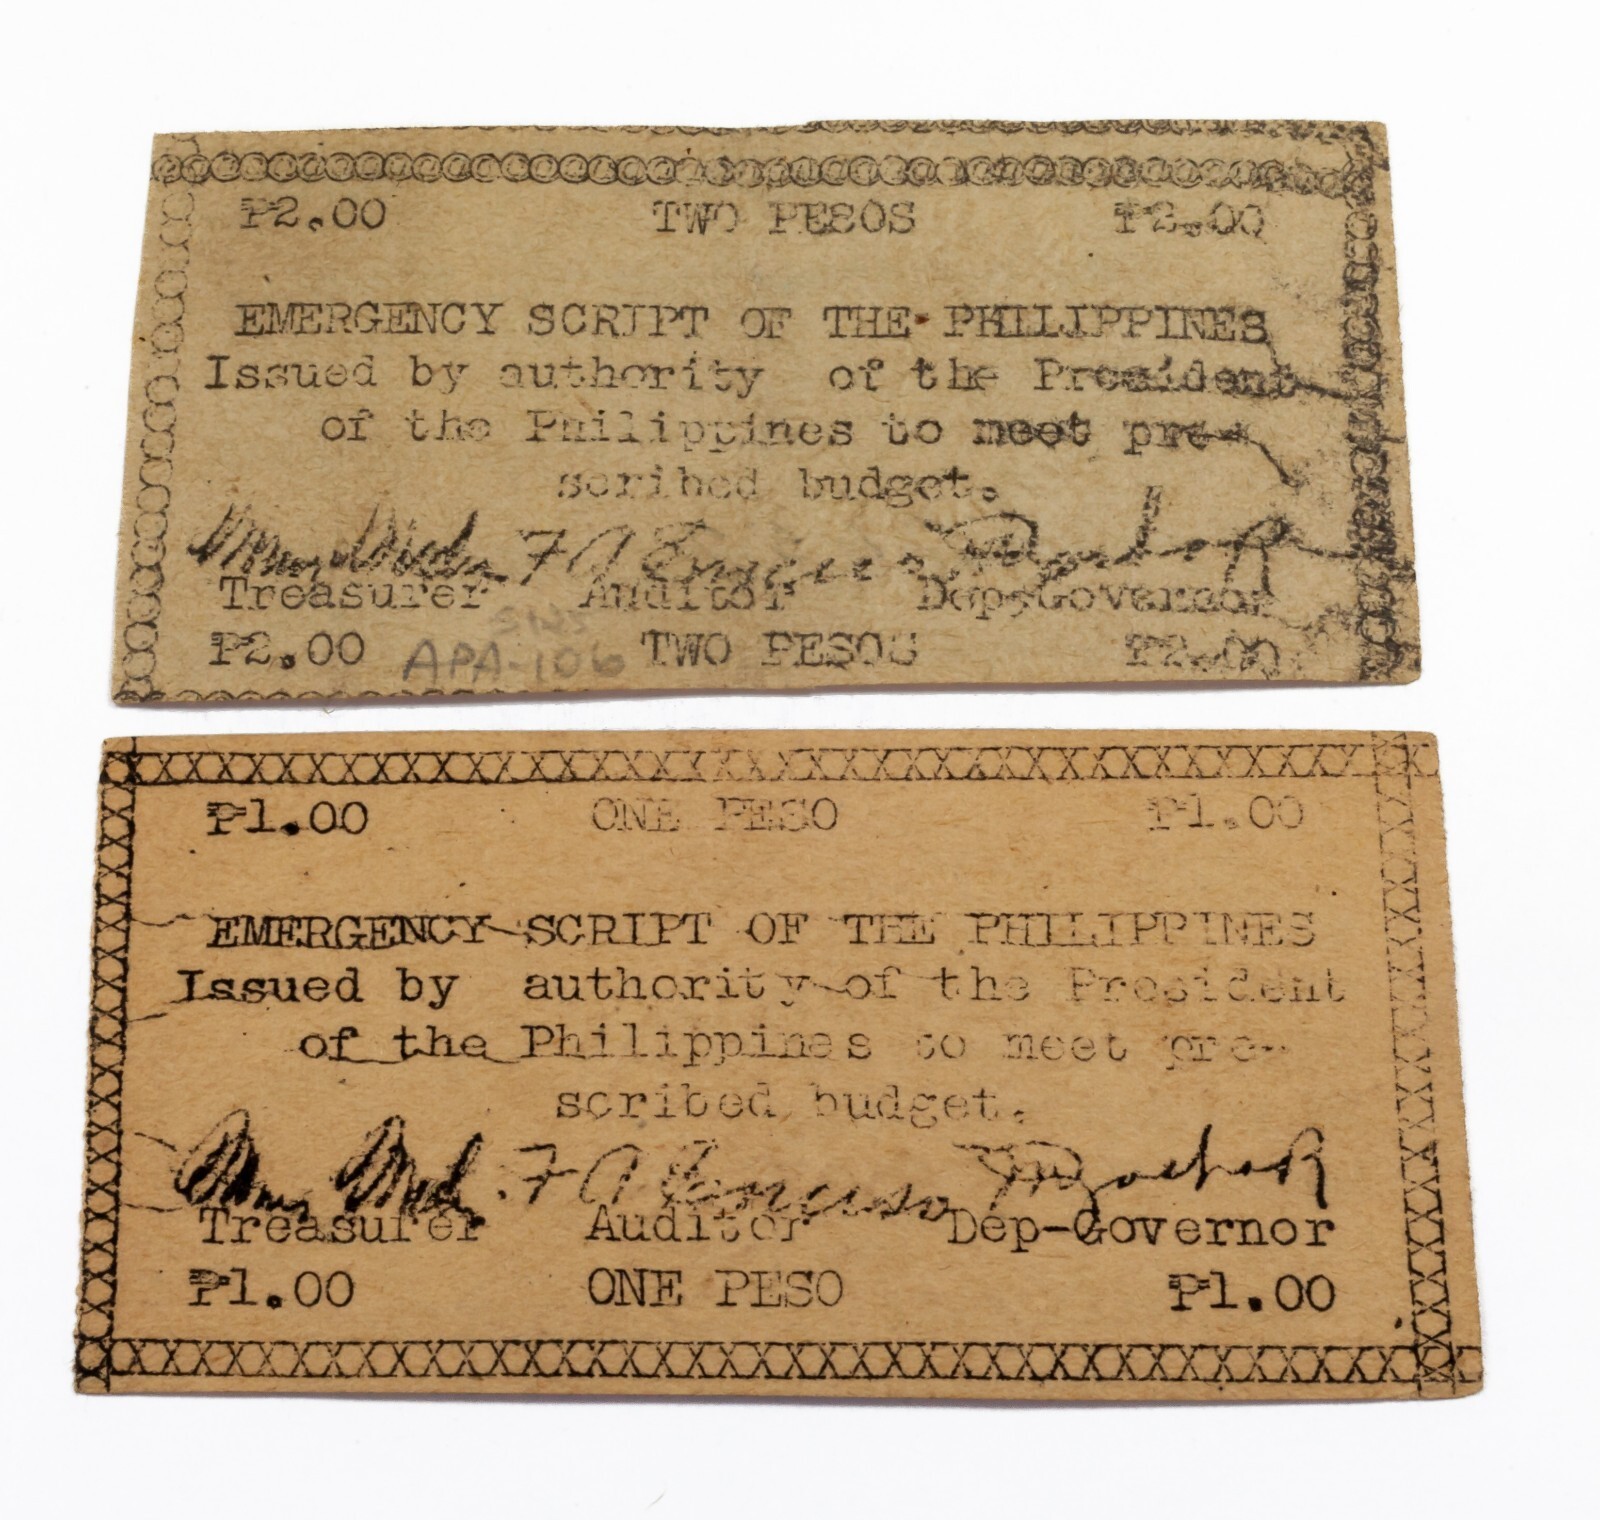 ₱2.00 TWO PESOS ₱2.00
EMERGENCY SCRIPT OF THE PHILIPPINES
Issued by authority of the President
of the Philippines to meet pre-
scribed budget.
Treasurer Auditor Dep-Governor
₱2.00 APA-106 TWO PESOS ₱2.00
₱1.00 ONE PESO ₱1.00
EMERGENCY SCRIPT OF THE PHILIPPINES
Issued by authority of the President
of the Philippines to meet pre-
scribed budget.
Treasurer Auditor Dep-Governor
₱1.00 ONE PESO ₱1.00